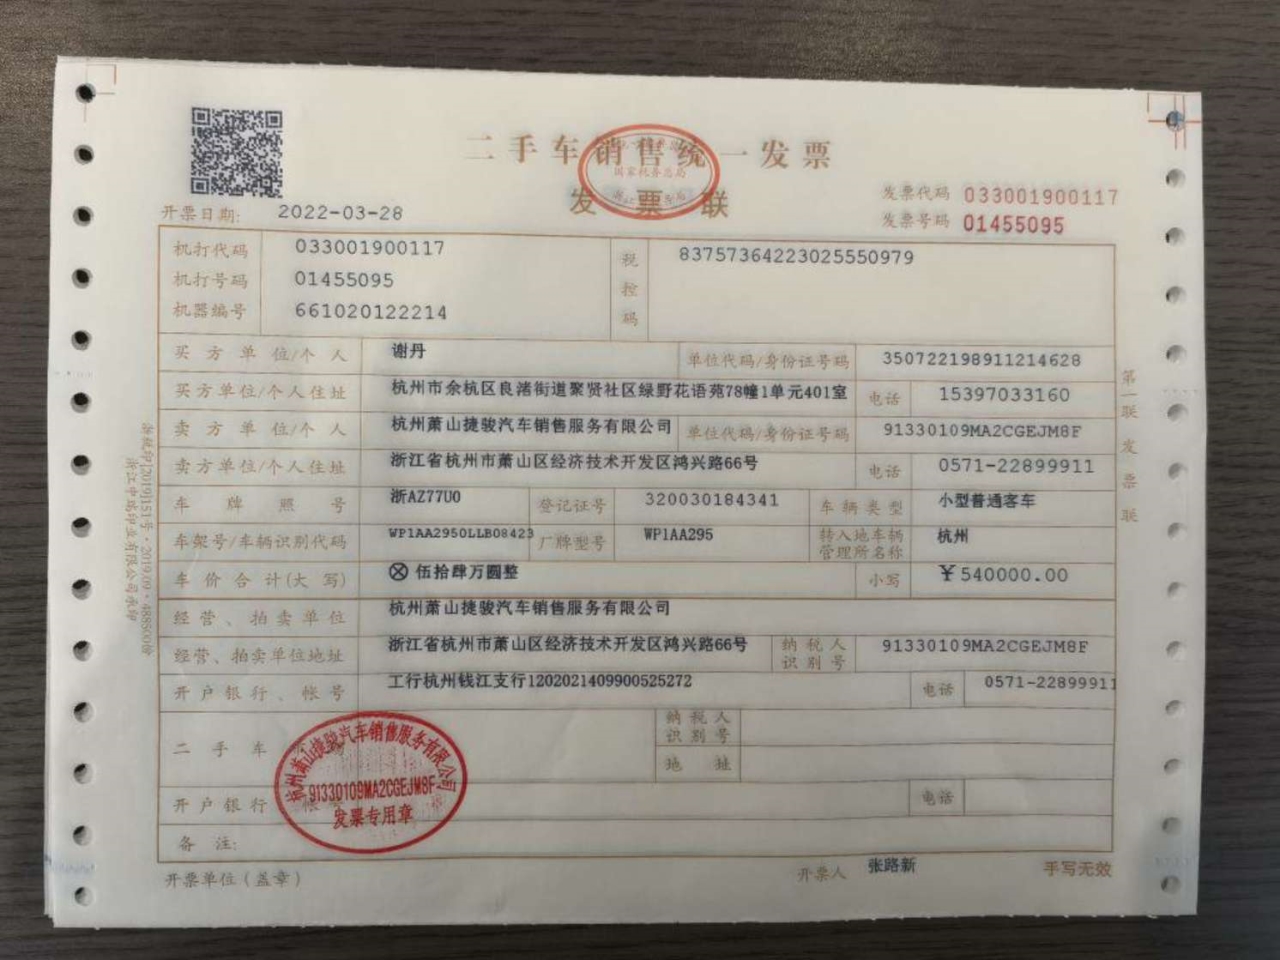 二手车销售统一发票
国家税务总局
发票联
发票代码 033001900117
开票日期: 2022-03-28
发票号码 01455095
机打代码 033001900117
机打号码 01455095
机器编号 661020122214
税控码 83757364223025550979
买方单位/个人 谢丹 单位代码/身份证号码 350722198911214628
买方单位/个人住址 杭州市余杭区良渚街道聚贤社区绿野花语苑78幢1单元401室 电话 15397033160
卖方单位/个人 杭州萧山捷骏汽车销售服务有限公司 单位代码/身份证号码 91330109MA2CGEJM8F
卖方单位/个人住址 浙江省杭州市萧山区经济技术开发区鸿兴路66号 电话 0571-22899911
车牌照号 浙AZ77U0 登记证号 320030184341 车辆类型 小型普通客车
车架号/车辆识别代码 WP1AA2950LLB08423 厂牌型号 WP1AA295 转入地车辆管理所名称 杭州
车价合计(大写) ⊗ 伍拾肆万圆整 小写 ¥540000.00
经营、拍卖单位 杭州萧山捷骏汽车销售服务有限公司
经营、拍卖单位地址 浙江省杭州市萧山区经济技术开发区鸿兴路66号 纳税人识别号 91330109MA2CGEJM8F
开户银行、帐号 工行杭州钱江支行1202021409900525272 电话 0571-22899911
二手车 纳税人识别号
地址
开户银行 电话
备注:
杭州萧山捷骏汽车销售服务有限公司
91330109MA2CGEJM8F
发票专用章
开票单位(盖章) 开票人 张路新 手写无效
第一联 发票联
浙江中瑞印业有限公司承印